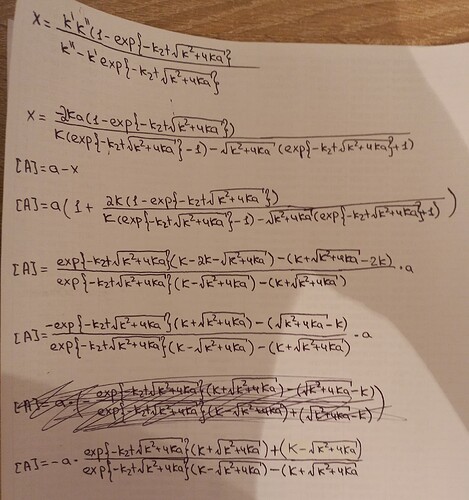 x = k'k''(1-exp{-k₂t√(K²+4Ka)}) / (k''-k'exp{-k₂t√(K²+4Ka)})
x = -2Ka(1-exp{-k₂t√(K²+4Ka)}) / (K(exp{-k₂t√(K²+4Ka)}-1)-√(K²+4Ka)(exp{-k₂t√(K²+4Ka)}+1))
[A]=a-x
[A]=a(1+ 2K(1-exp{-k₂t√(K²+4Ka)}) / (K(exp{-k₂t√(K²+4Ka)}-1)-√(K²+4Ka)(exp{-k₂t√(K²+4Ka)}+1)))
[A]= (exp{-k₂t√(K²+4Ka)}(K-2K-√(K²+4Ka))-(K+√(K²+4Ka)-2K)) / (exp{-k₂t√(K²+4Ka)}(K-√(K²+4Ka))-(K+√(K²+4Ka))) ·a
[A]= (-exp{-k₂t√(K²+4Ka)}(K+√(K²+4Ka))-(√(K²+4Ka)-K)) / (exp{-k₂t√(K²+4Ka)}(K-√(K²+4Ka))-(K+√(K²+4Ka))) ·a
[A]=-a· (exp{-k₂t√(K²+4Ka)}(K+√(K²+4Ka))+(K-√(K²+4Ka))) / (exp{-k₂t√(K²+4Ka)}(K-√(K²+4Ka))-(K+√(K²+4Ka)))